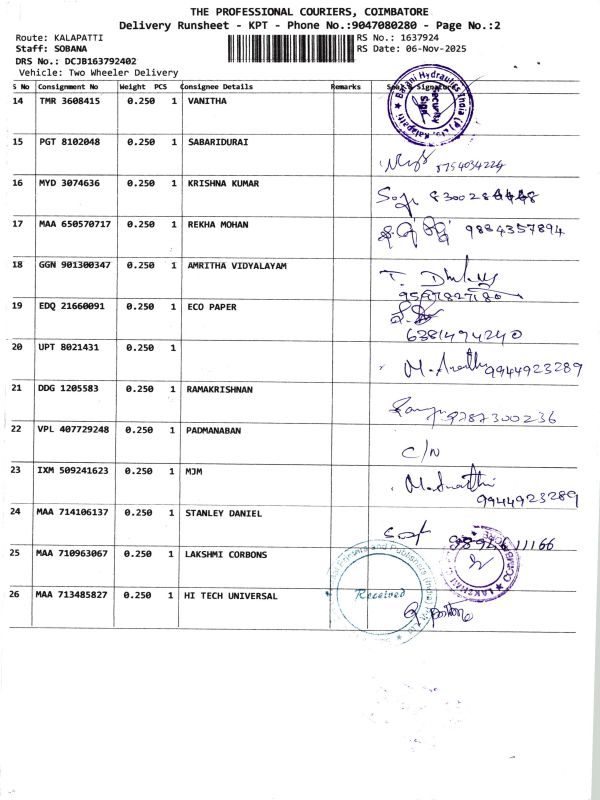 THE PROFESSIONAL COURIERS, COIMBATORE
Delivery Runsheet - KPT - Phone No.:9047080280 - Page No.:2
Route: KALAPATTI RS No.: 1637924
Staff: SOBANA RS Date: 06-Nov-2025
DRS No.: DCJB163792402
Vehicle: Two Wheeler Delivery
S No Consignment No Weight PCS Consignee Details Remarks Seal & Signature
14 TMR 3608415 0.250 1 VANITHA
Hydraulics India (P) Kalapatti
Security
Sign
15 PGT 8102048 0.250 1 SABARIDURAI
8754034224
16 MYD 3074636 0.250 1 KRISHNA KUMAR
17 MAA 650570717 0.250 1 REKHA MOHAN 9884357894
18 GGN 901300347 0.250 1 AMRITHA VIDYALAYAM
9597827180
19 EDQ 21660091 0.250 1 ECO PAPER
6381494240
20 UPT 8021431 0.250 1
9944923289
21 DDG 1205583 0.250 1 RAMAKRISHNAN
9787300236
22 VPL 407729248 0.250 1 PADMANABAN
C/N
23 IXM 509241623 0.250 1 MJM
9944923289
24 MAA 714106137 0.250 1 STANLEY DANIEL
25 MAA 710963067 0.250 1 LAKSHMI CORBONS
LAKSHMI
26 MAA 713485827 0.250 1 HI TECH UNIVERSAL
Received